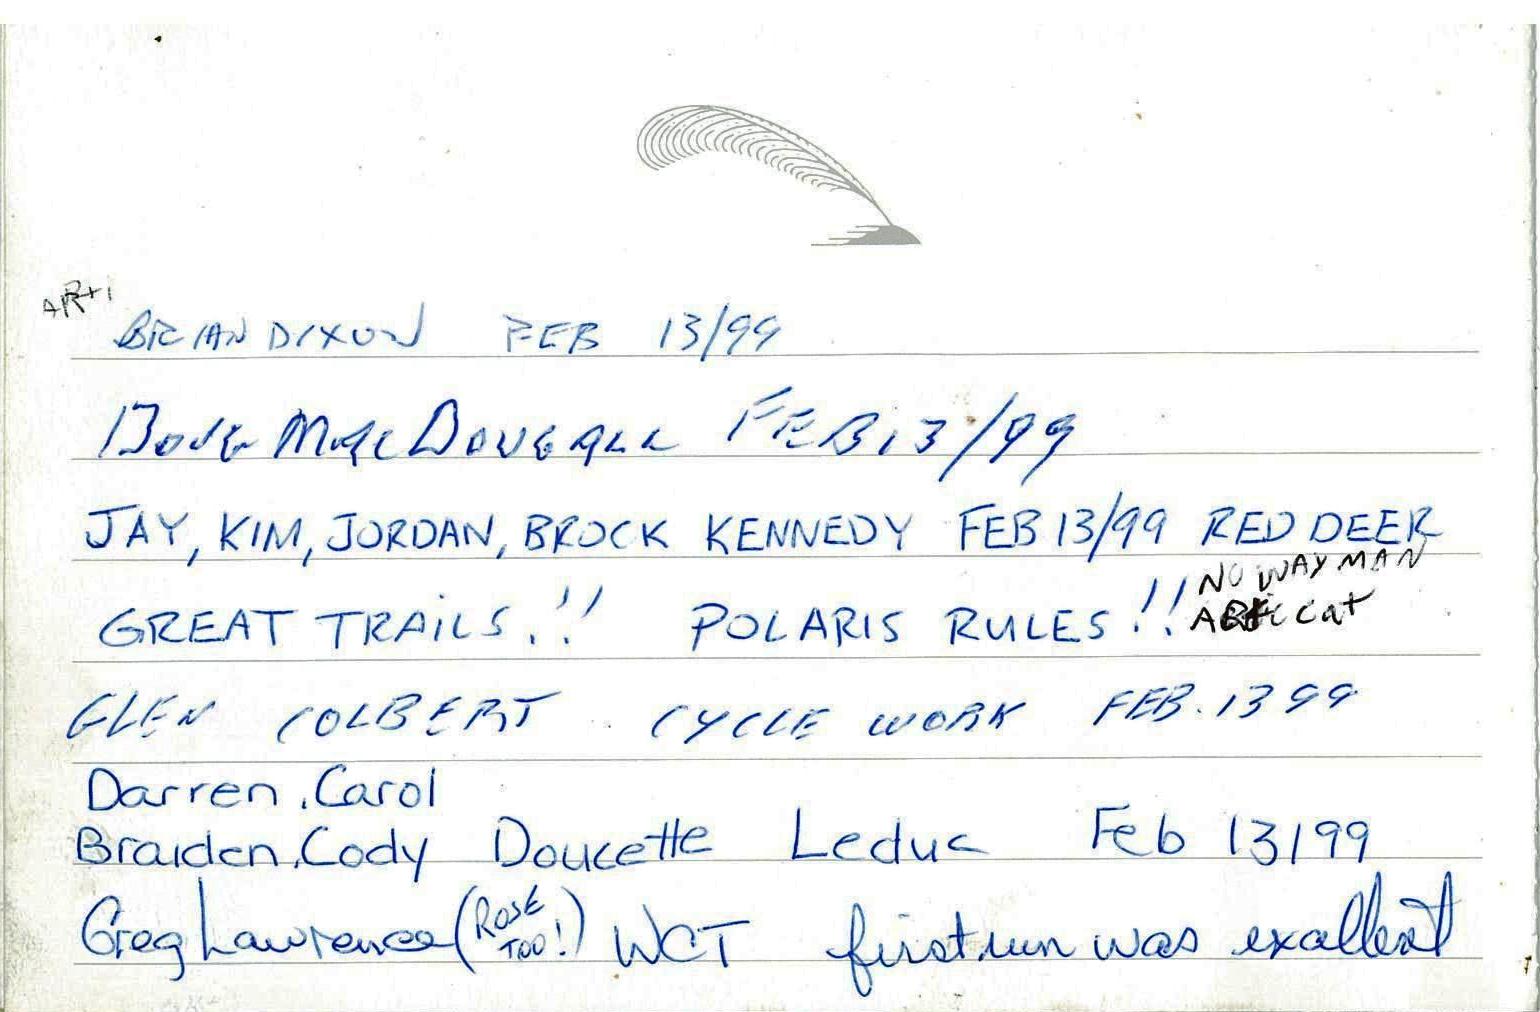 ARti
BRIAN DIXON FEB 13/99
DOUG MACDOUGALL FEB 13/99
JAY, KIM, JORDAN, BROCK KENNEDY FEB 13/99 RED DEER
NO WAY MAN
GREAT TRAILS!! POLARIS RULES!! ARtic cat
GLEN COLBERT CYCLE WORK FEB. 13 99
Darren, Carol
Braiden, Cody Doucette Leduc Feb 13/99
Greg Lawrence (ROSE TOO!) WCT first run was exallent